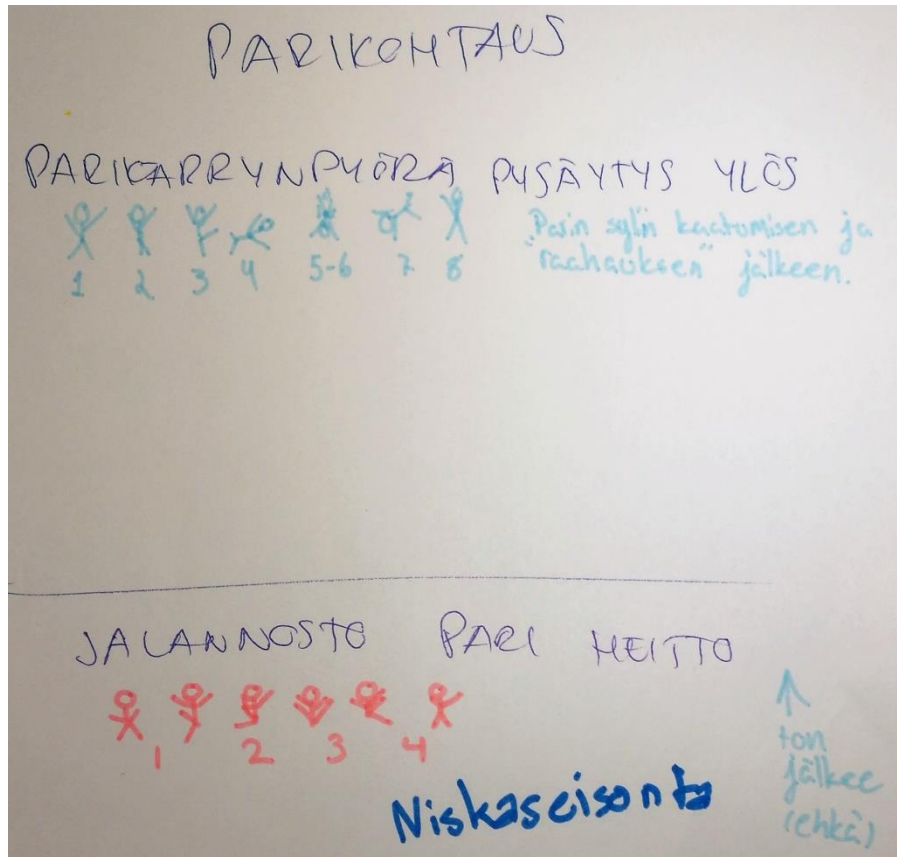 PARIKOHTAUS
PARIKÄRRYNPYÖRÄ PYSÄYTYS YLÖS
1 2 3 4 5-6 7 8
Parin syliin kaatumisen ja
"raahauksen" jälkeen.
JALANNOSTO PARI HEITTO
1 2 3 4
ton
jälkee
(ehkä)
Niskaseisonta